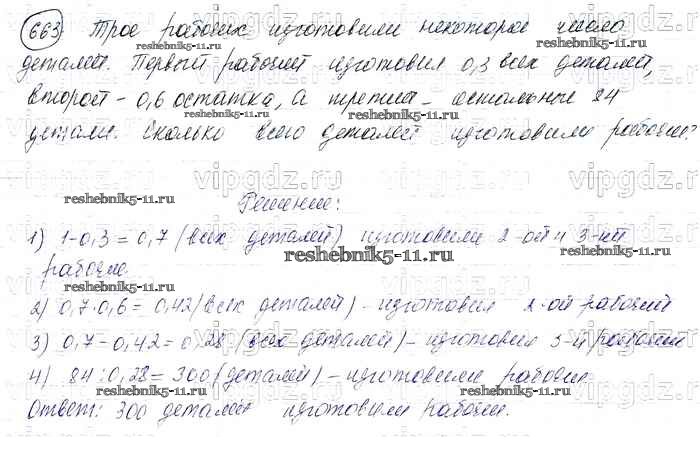 663 Трое рабочих изготовили некоторое число
reshebnik5-11.ru reshebnik5-11.ru
деталей. Первый рабочий изготовил 0,3 всех деталей,
второй - 0,6 остатка, а третий - остальные 84
reshebnik5-11.ru reshebnik5-11.ru
детали. Сколько всего деталей изготовили рабочие?
vipgdz.ru vipgdz.ru vipgdz.ru
reshebnik5-11.ru Решение: reshebnik5-11.ru
1) 1-0,3=0,7 (всех деталей) изготовили 2-ой и 3-ий
vipgdz.ru vipgdz.ru reshebnik5-11.ru vipgdz.ru
рабочие.
2) 0,7·0,6=0,42 (всех деталей) - изготовил 2-ой рабочий
vipgdz.ru vipgdz.ru vipgdz.ru
3) 0,7-0,42=0,28 (всех деталей) - изготовил 3-й рабочий
reshebnik5-11.ru reshebnik5-11.ru
4) 84:0,28=300 (деталей) - изготовили рабочие
vipgdz.ru vipgdz.ru vipgdz.ru
Ответ: 300 деталей изготовили рабочие.
reshebnik5-11.ru reshebnik5-11.ru
vipgdz.ru vipgdz.ru vipgdz.ru